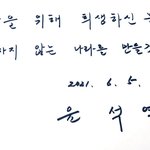 을 위해 희생하신
지 않는 나라를 만들
2021. 6. 5.
윤 석